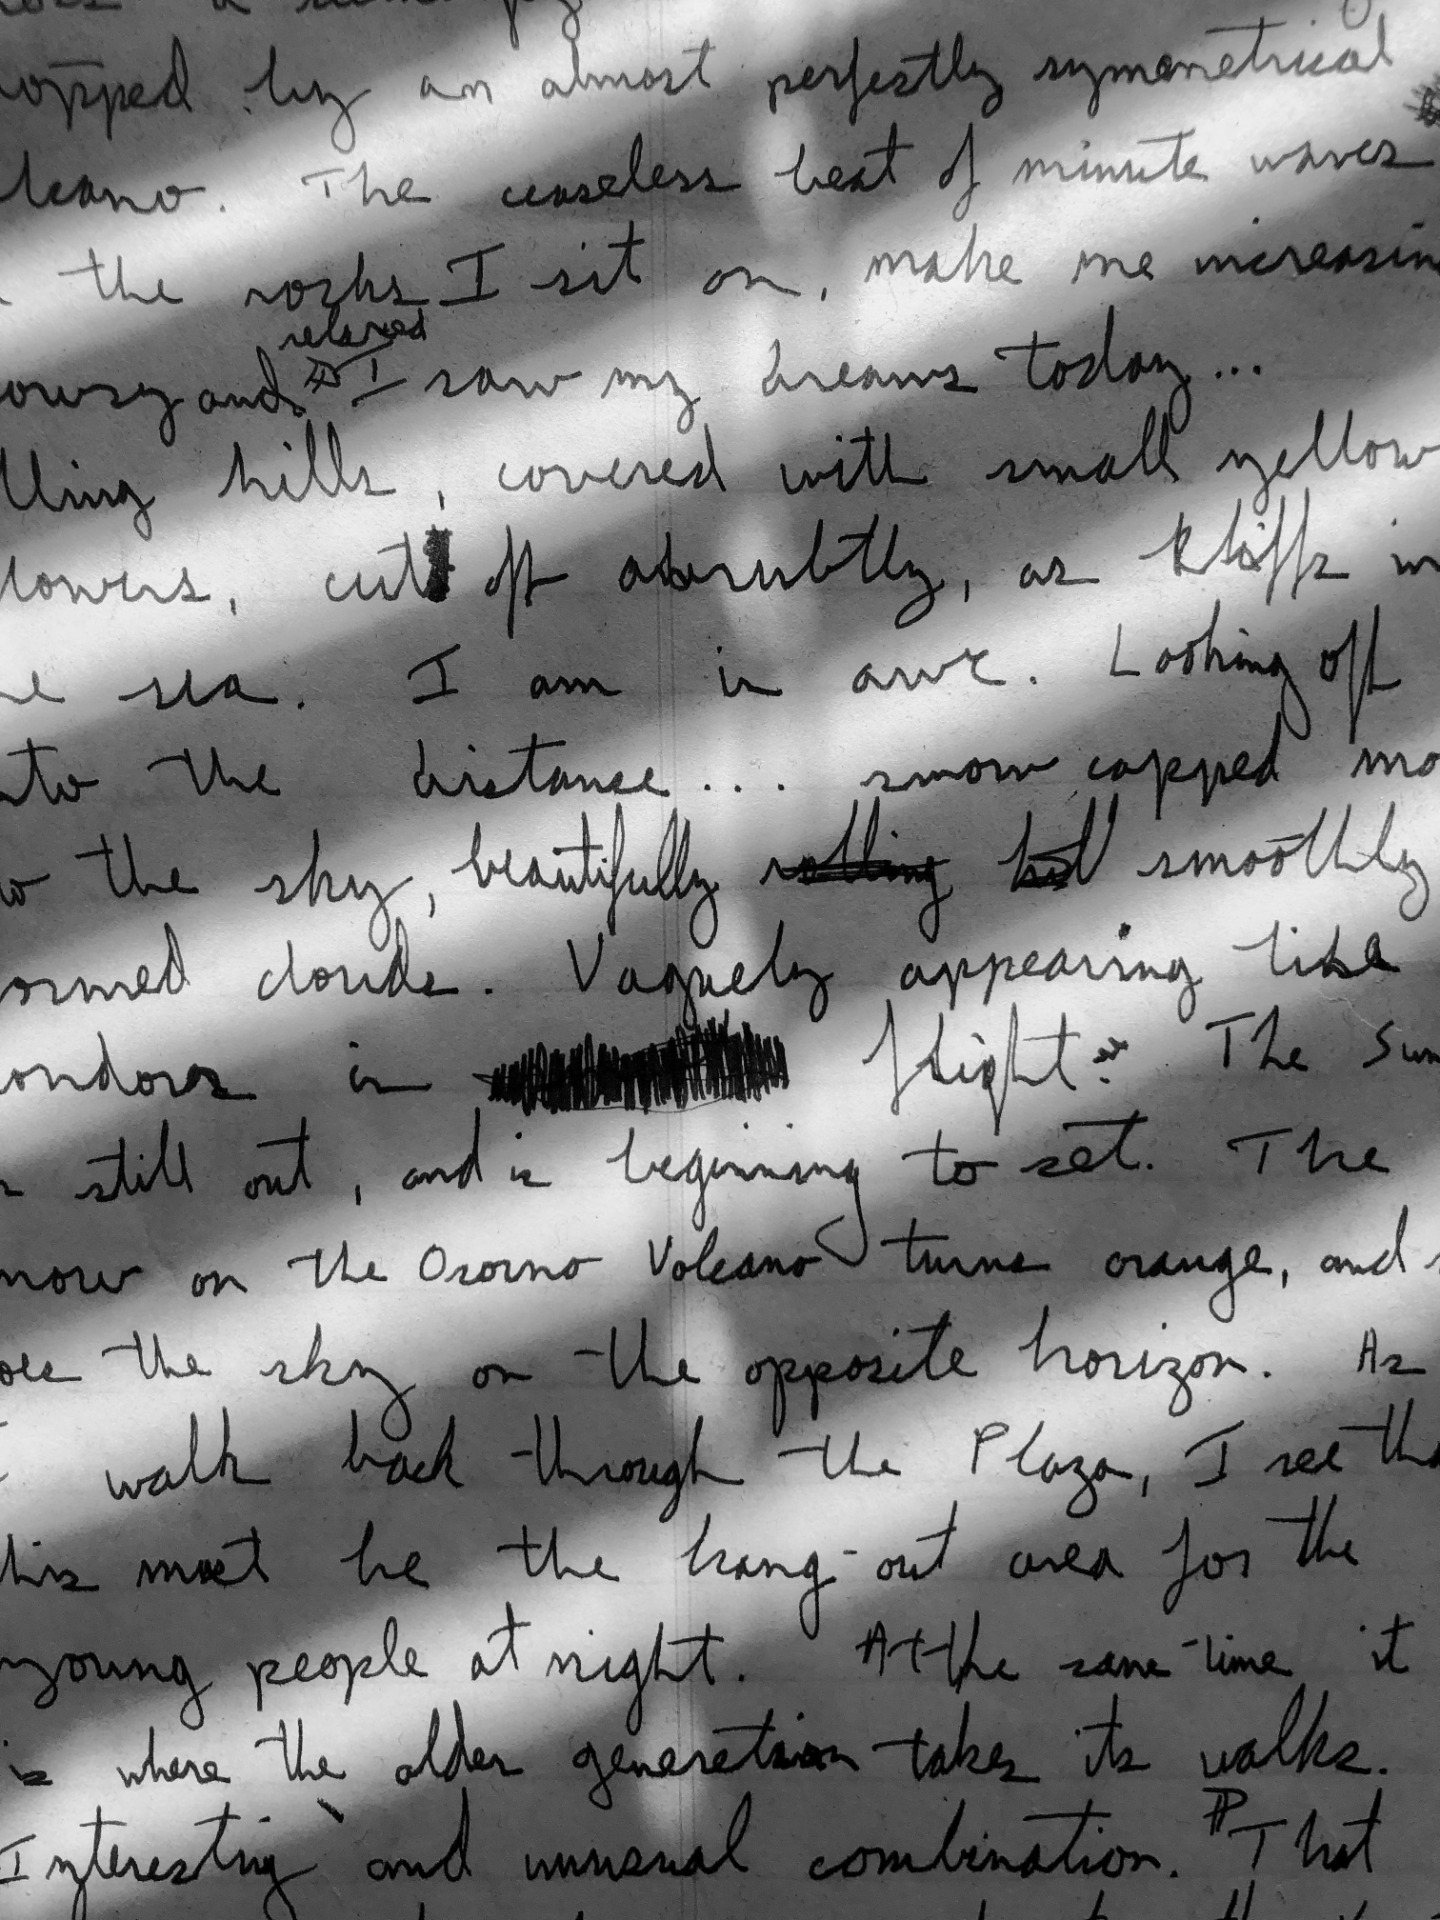 opped by an almost perfectly symmetrical
lcano. The ceaseless beat of minute waves
the rocks I sit on, make me increasin
relaxed
owsy and I saw my dreams today...
lling hills, covered with small yellow
lowers, cut off abrubtly, as kliffs in
he sea. I am in awe. Looking off
nto the distance... snow capped mo
w the sky, beautifully rolling smoothly
ormed clouds. Vaguely appearing like
ondors in flight. The Sun
still out, and is beginning to set. The
now on the Osorno Volcano turns orange, and
oes the sky on the opposite horizon. As
I walk back through the Plaza, I see tha
this must be the hang-out area for the
young people at night. At the same time it
is where the older generation takes its walks.
Interesting and unusual combination. ¶ That